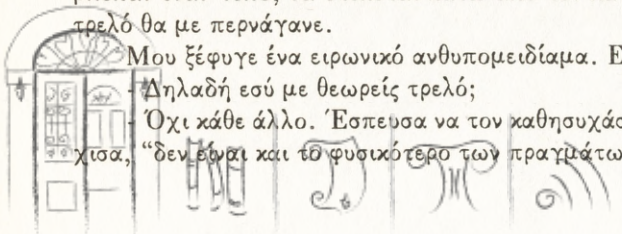 τρελό θα με περνάγανε.
Μου ξέφυγε ένα ειρωνικό ανθυπομειδίαμα.
- Δηλαδή εσύ με θεωρείς τρελό;
- Όχι κάθε άλλο. Έσπευσα να τον καθησυχάσ
χισα, “δεν είναι και το φυσικότερο των πραγμάτω